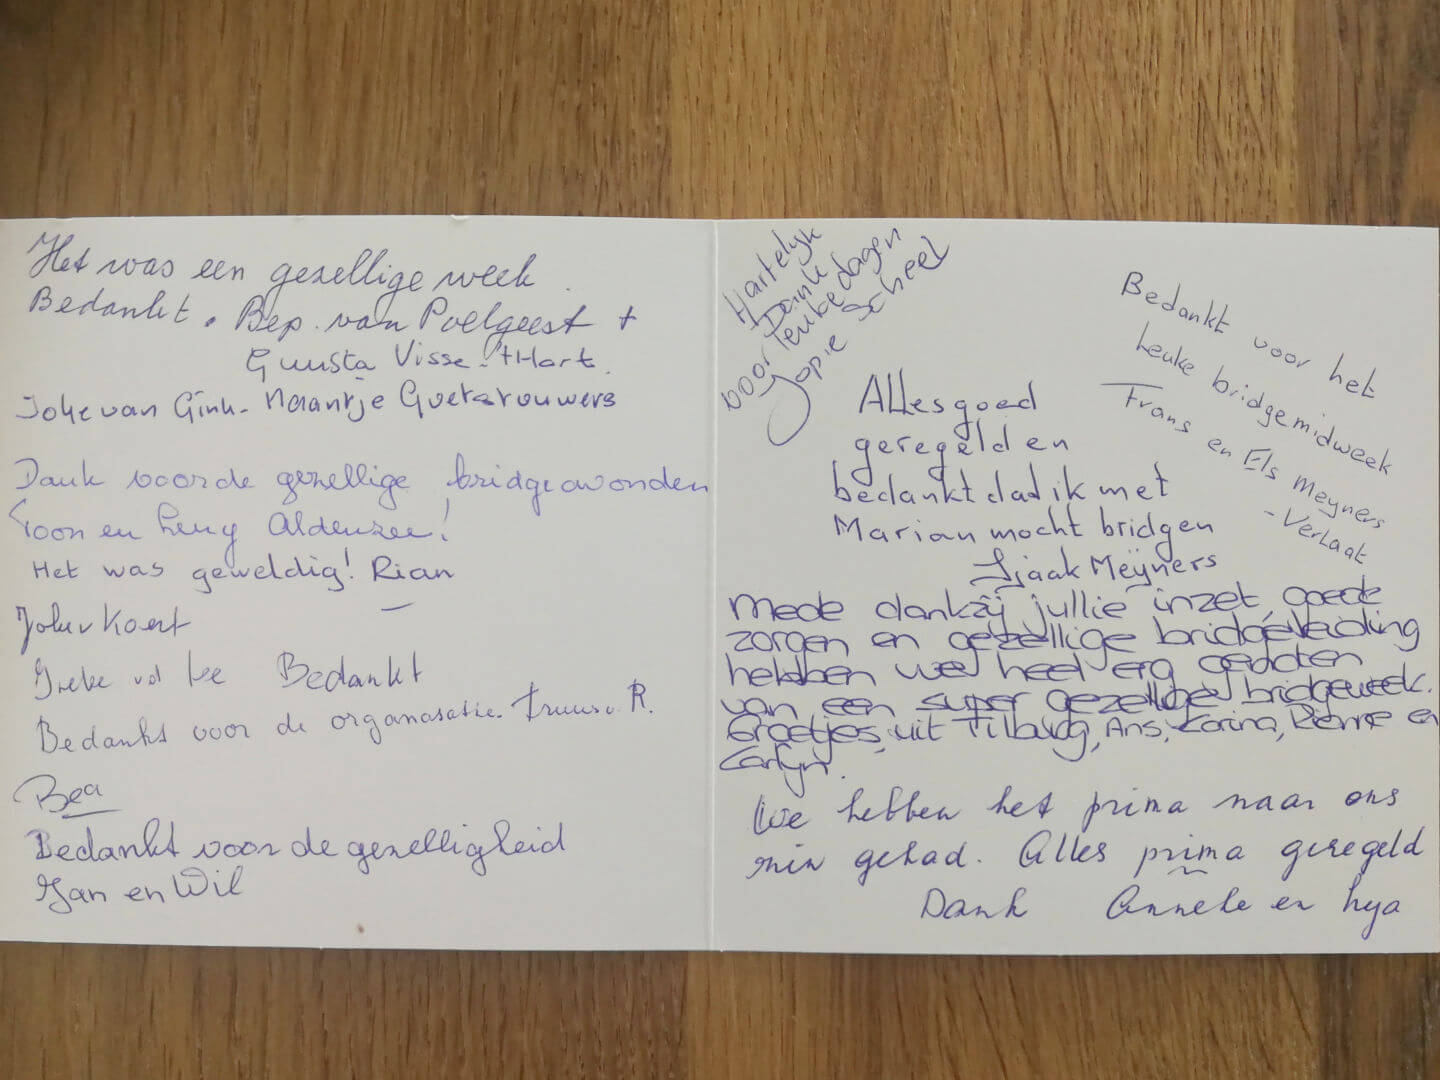 Het was een gezellige week.
Bedankt. Bep van Poelgeest +
Guusta Visse-'tHart.
Joke van Gink - Maantje
Dank voor de gezellige bridgeavonden
Toon en Leny Aldenzee!
Het was geweldig! Rian
Bedankt
Bedankt voor de organasatie. Truus v. R.
Bea
Bedankt voor de gezelligheid
Jan en Wil
Hartelyk
Dank
voor leuke dagen
Jopie Scheel
Bedankt voor het
leuke bridgemidweek
Frans en Els Meyners
-Verlaat
Alles goed
geregeld en
bedankt dat ik met
Marian mocht bridgen
Sjaak Meijners
Mede dankzij jullie inzet, goede
zorgen en gezellige bridgeleiding
hebben we heel erg genoten
van een super gezellige bridgeweek.
Groetjes uit Tilburg, Ans, Corina, Pierre en
Carlyn.
We hebben het prima naar ons
zin gehad. Alles prima geregeld
Dank Anneke en